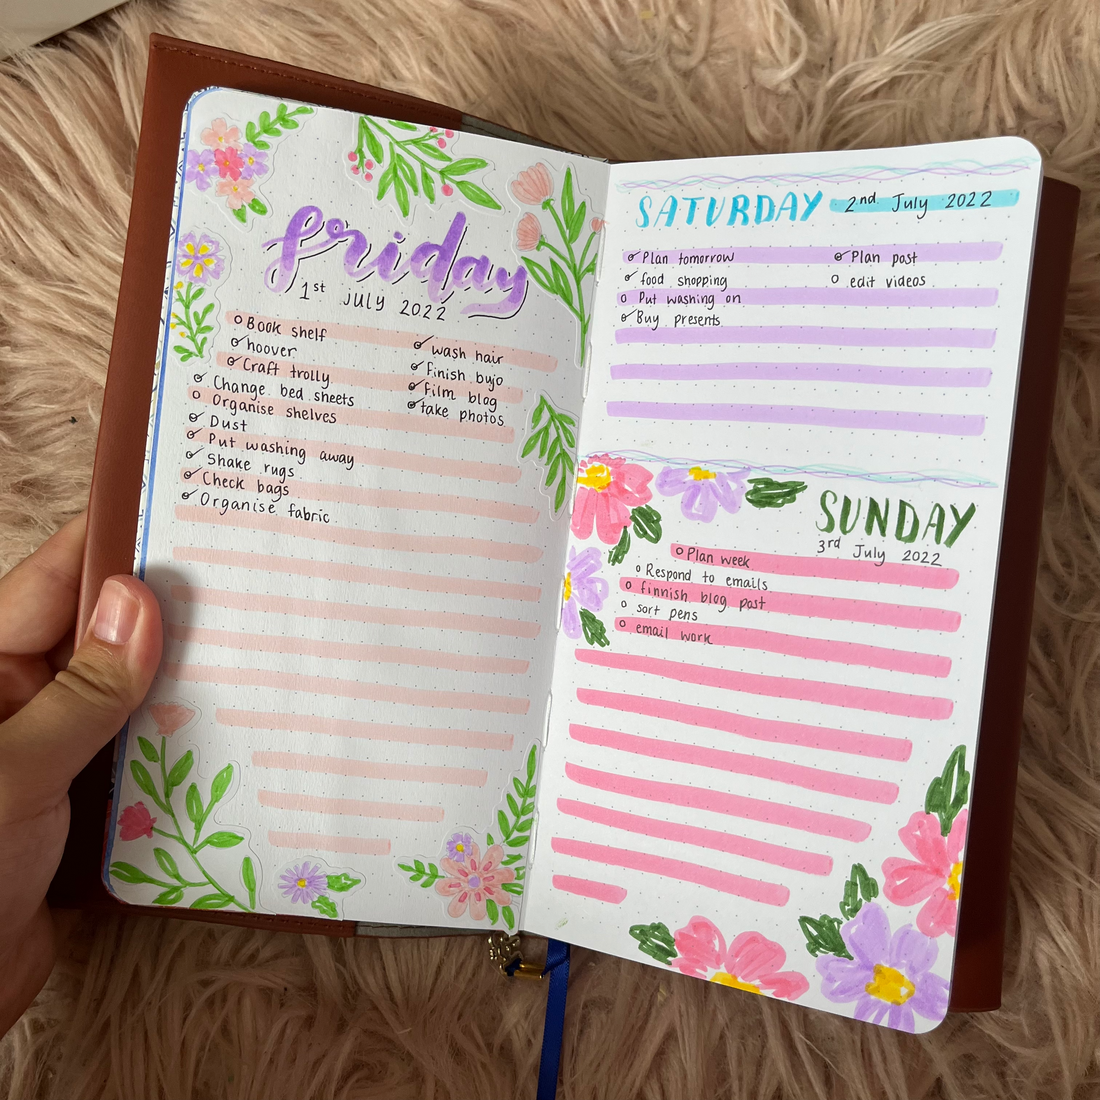 friday
1st JULY 2022
Book shelf
hoover
Craft trolly
Change bed sheets
Organise shelves
Dust
Put washing away
Shake rugs
Check bags
Organise fabric
wash hair
finish bujo
film blog
take photos
SATURDAY 2nd July 2022
Plan tomorrow
food shopping
Put washing on
Buy presents
Plan post
edit videos
SUNDAY
3rd July 2022
Plan week
Respond to emails
finnish blog post
sort pens
email work